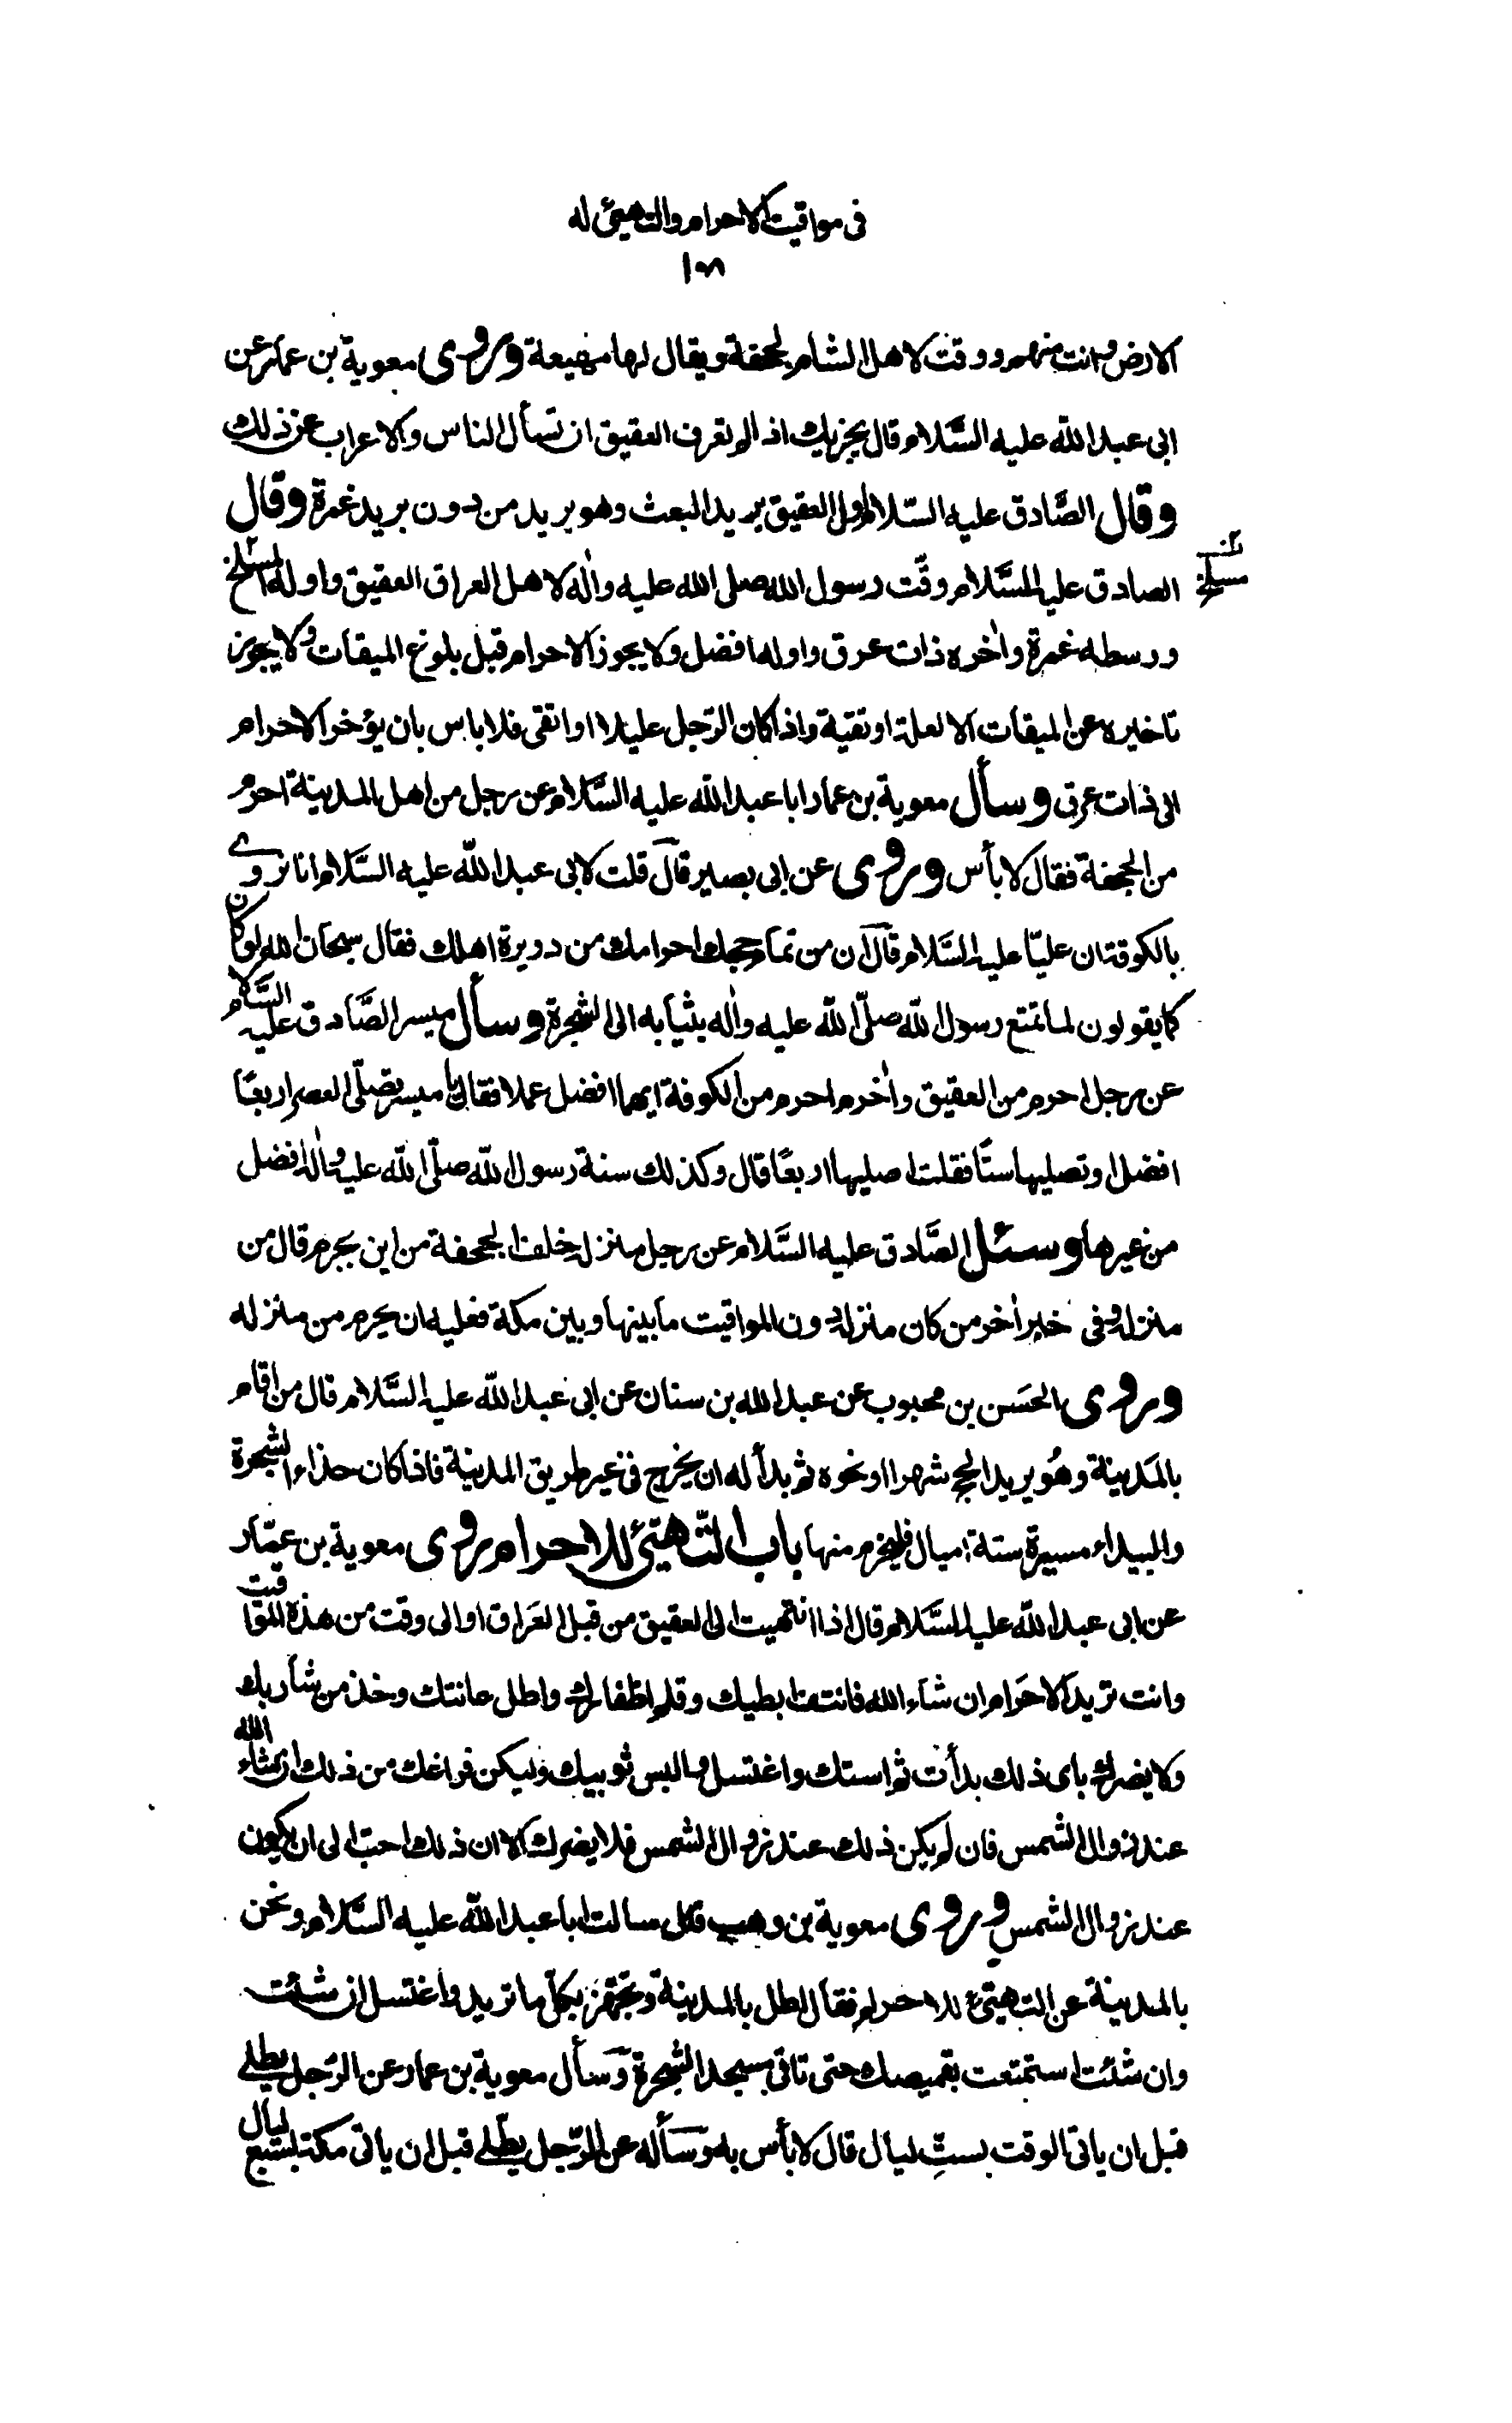 في مواقيت الاحرام والتاهيئ له
١٥٨
الارض وانت منهم ووقت لاهل الشام الجحفة ويقال لها مهيعة وروى معوية بن عمار عن
ابي عبد الله عليه السَّلام قال يجزيك اذا لم تعرف العقيق ان تسأل الناس والاعراب عن ذلك
وقال الصَّادق عليه السّلام اول العقيق بريد البعث وهو بريد من دون بريد غمرة وقال
الصادق عليه السَّلام وقَّت رسول الله صلى الله عليه واٰله لاهل العراق العقيق واوله المسلخ
مسلح
ووسطه غمرة واٰخره ذات عرق واوله افضل ولا يجوز الاحرام قبل بلوغ الميقات ولا يجوز
تاخيره عن الميقات الا لعلة او تقية واذا كان الرّجل عليلا او اتقى فلا باس بان يؤخر الاحرام
الى ذات عرق وسأل معوية بن عمار ابا عبد الله عليه السَّلام عن رجل من اهل المدينة احرم
من الجحفة فقال لا بأس وروى عن ابي بصير قال قلت لابي عبد الله عليه السَّلام انا نروى
بالكوفة ان عليّا عليه السَّلام قال ان من تمام حجك احرامك من دويرة اهلك فقال سبحان الله لو كان
كما يقولون لما تمتع رسول الله صلّى الله عليه واٰله بثيابه الى الشجرة وسأل ميسر الصَّادق عليه السَّلام
عن رجل احرم من العقيق واٰخر احرم من الكوفة ايهما افضل عملا فقال يا ميسر تصلّى العصر اربعًا
افضل او تصليها ستّا فقلت اصليها اربعًا قال وكذلك سنة رسول الله صلّى الله عليه واٰله افضل
من غيرها وسئل الصَّادق عليه السَّلام عن رجل منزله خلف الجحفة من اين يحرم قال من
منزله وفي خبر اٰخر من كان منزله دون المواقيت ما بينها وبين مكة فعليه ان يحرم من منزله
وروى الحسَن بن محبوب عن عبد الله بن سنان عن ابي عبد الله عليه السَّلام قال من اقام
بالمدينة وهُو يريد الحج شهرا او نحوه ثم بدأ له ان يخرج في غير طريق المدينة فاذا كان حذاء الشجرة
والبيداء مسيرة ستة اميال فليحرم منها باب التّاهيّئ للاحرام روى معوية بن عمّار
عن ابي عبد الله عليه السَّلام قال اذا انتهيت الى العقيق من قبل العراق او الى وقت من هذه المواقيت
وانت تريد الاحرام ان شاء الله فانتف ابطيك وقلم اظفارك واطل عانتك وخذ من شاربك
ولا يضرك باى ذلك بدأت ثم استك واغتسل والبس ثوبيك وليكن فراغك من ذلك ان شاء الله
عند زوال الشمس فان لم يكن ذلك عند زوال الشمس فلا يضرك الا ان ذلك احبّ الى ان يكون
عند زوال الشمس وروى معوية بن وهب قال سالت ابا عبد الله عليه السَّلام ونحن
بالمدينة عن التهيئ للاحرام فقال اطل بالمدينة وتجهّز بكلّ ما تريد واغتسل ان شئت
وان شئت استمتعت بقميصك حتى تاتى مسجد الشجرة وسأل معوية بن عمار عن الرّجل يطلى
قبل ان ياتى الوقت بستّ ليال قال لا بأس به وسأله عن الرّجل يطّلى قبل ان ياتى مكة بسبع ليال